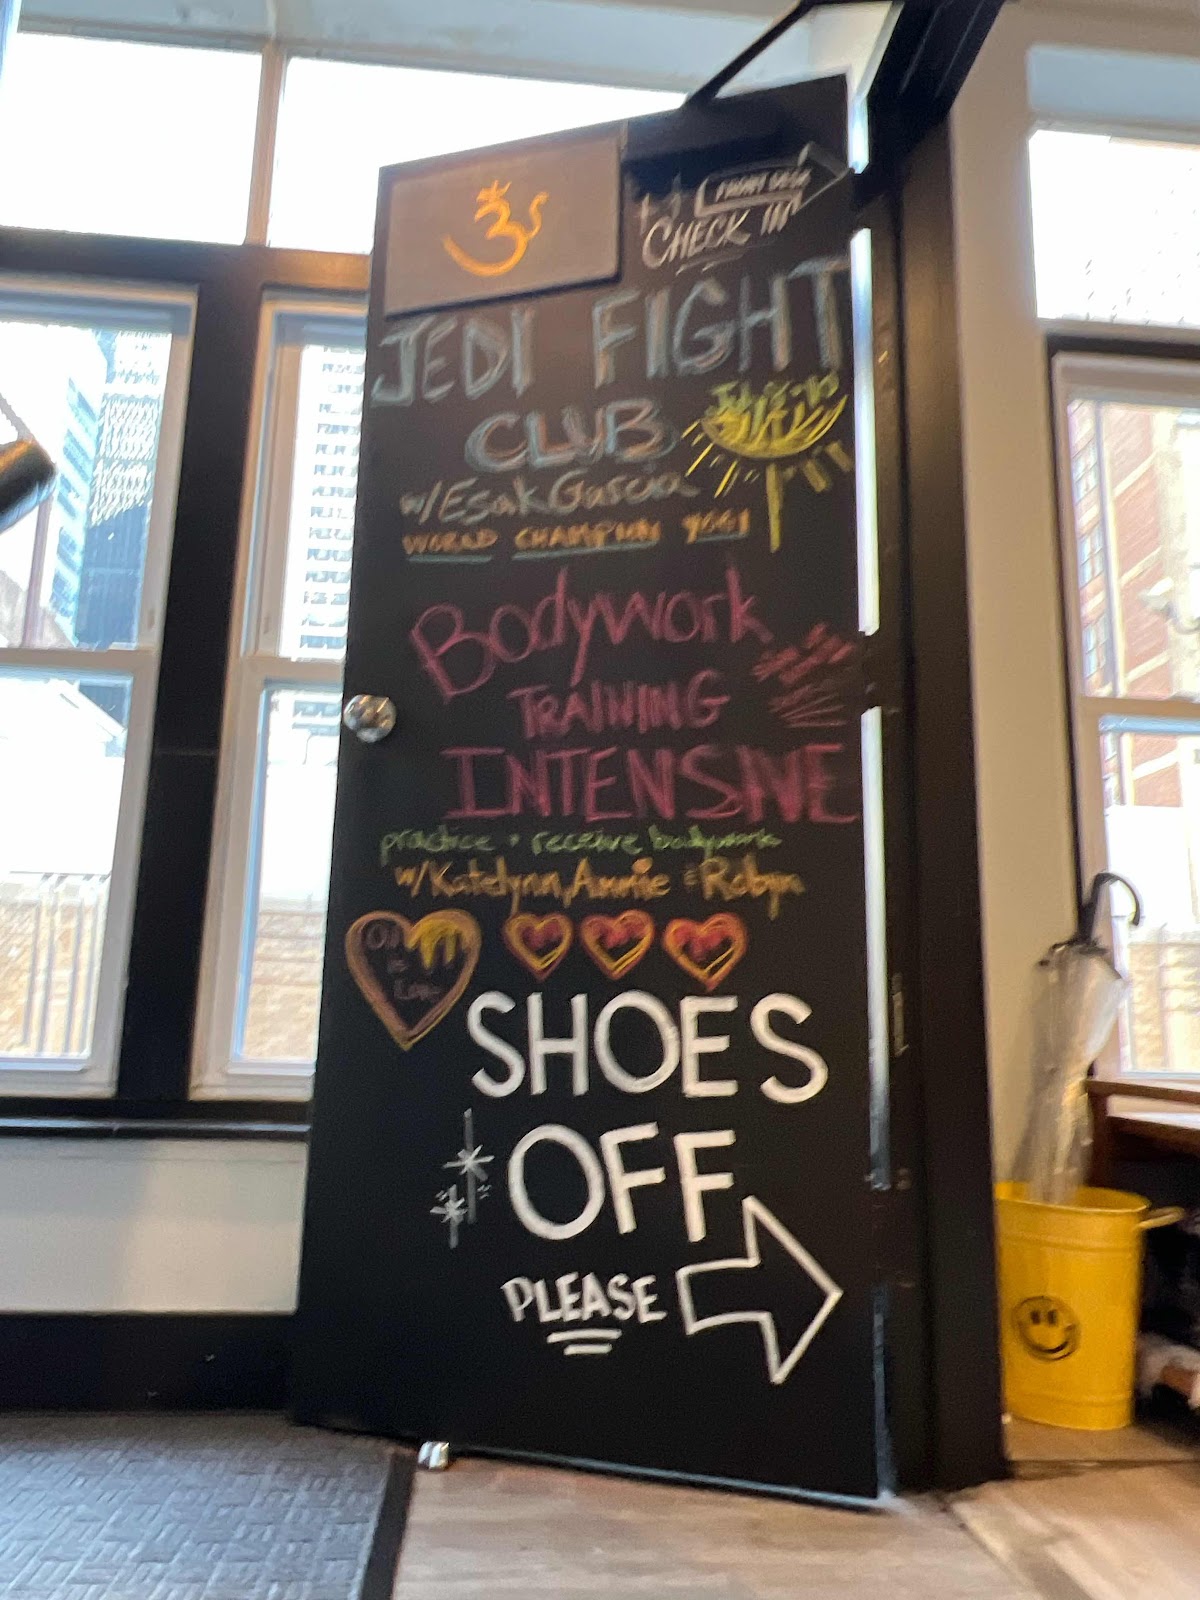 ॐ
FRONT DESK
CHECK IN
JEDI FIGHT
CLUB
w/Esak Garcia
WORLD CHAMPION YOGI
Bodywork
TRAINING
INTENSIVE
practice + receive bodywork
w/Katelynn, Annie & Robyn
SHOES
OFF
PLEASE